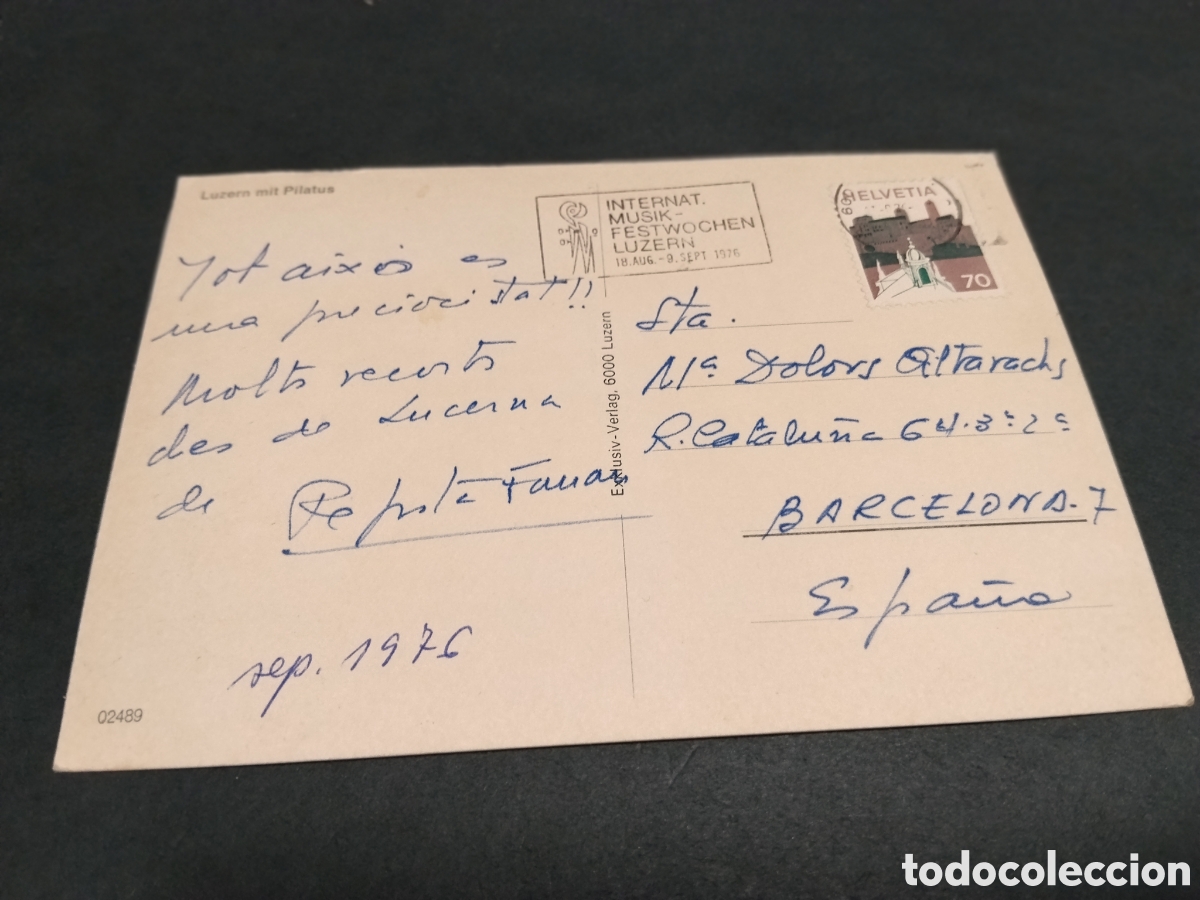 Luzern mit Pilatus
INTERNAT.
MUSIK-
FESTWOCHEN
LUZERN
18. AUG. - 9. SEPT 1976
HELVETIA
70
Tot aixòs es
una preciocitat!!
Molts recorts
des de Lucerna
de Pepita
sep. 1976
02489
Exklusiv-Verlag, 6000 Luzern
Sta.
Mª Dolors Altarachs
R. Cataluña 64·3º 2ª
BARCELONA-7
España
todocoleccion